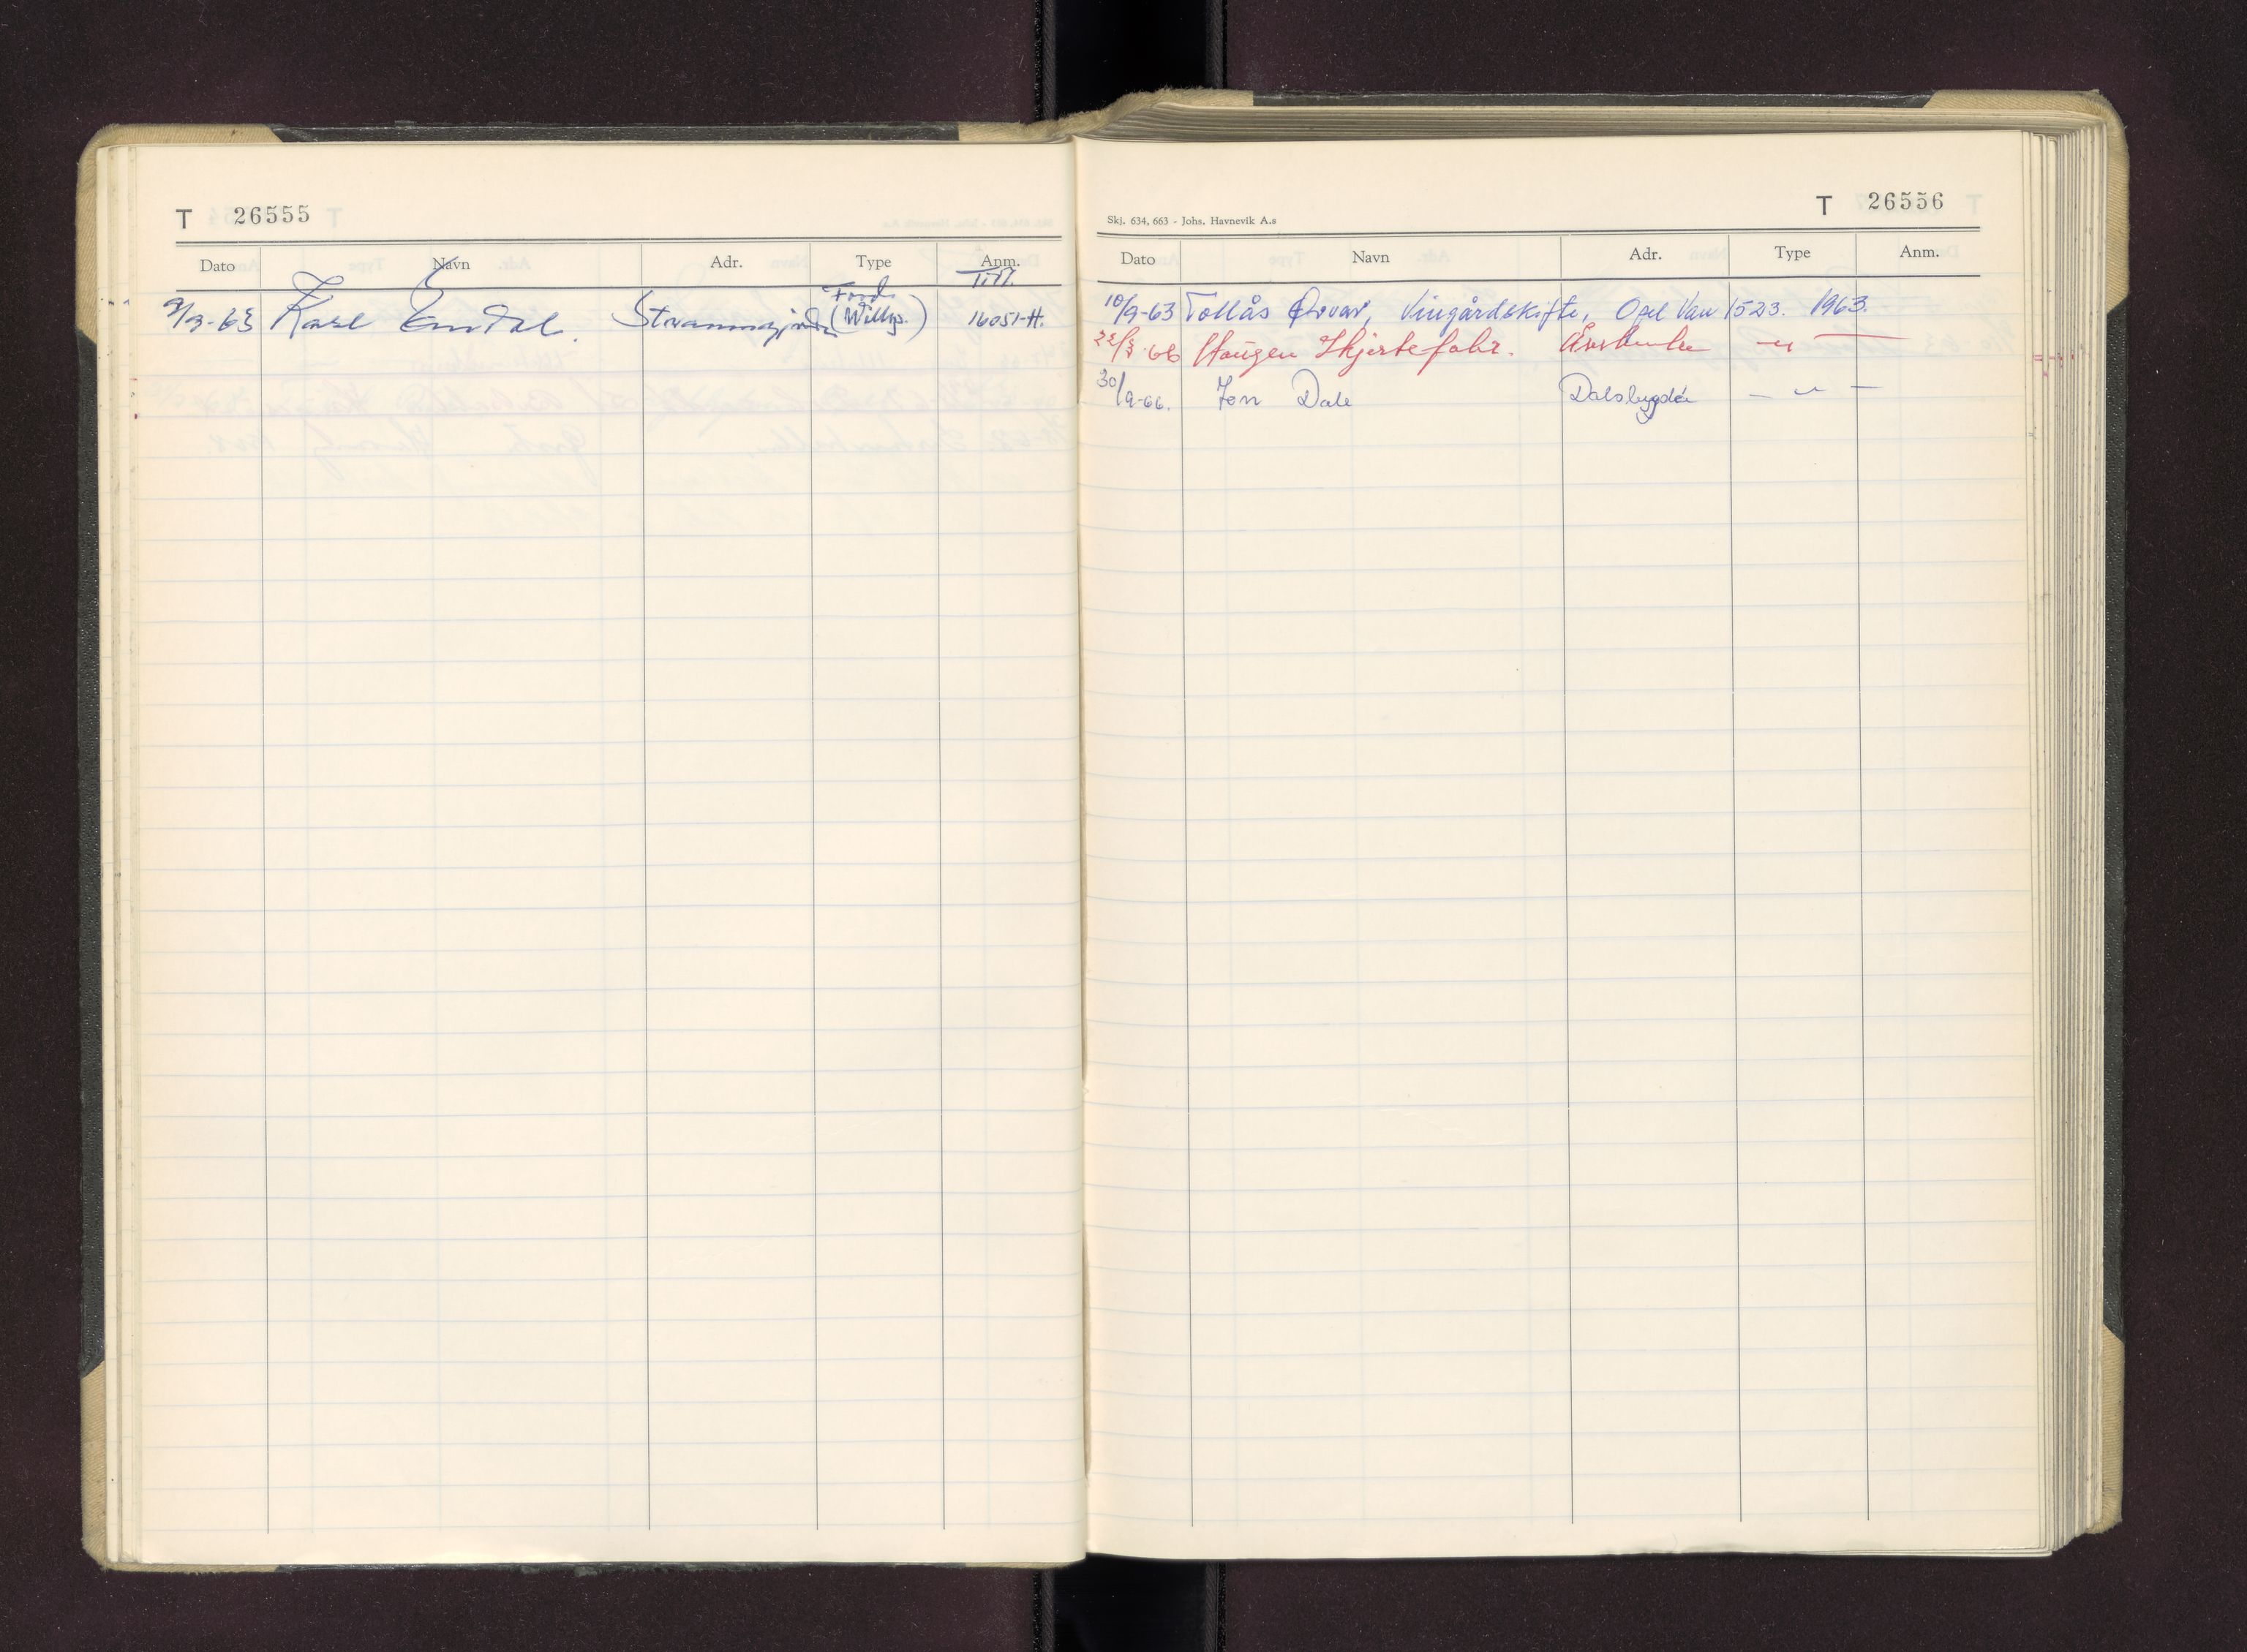 T 26555
Dato Navn Adr. Type Anm.
Ford
9/9-63 Karl Emdal. (Willys.) 16051-H.
T 26556
Skj. 634, 663 - Johs. Havnevik A.s
Dato Navn Adr. Type Anm.
10/9-63 Tollås Vingårdskifte, Opel Van 1523. 1963.
-66 Haugen Skjortefabr. — " —
30/9-66. Jon Dale Dalsbygda — " —